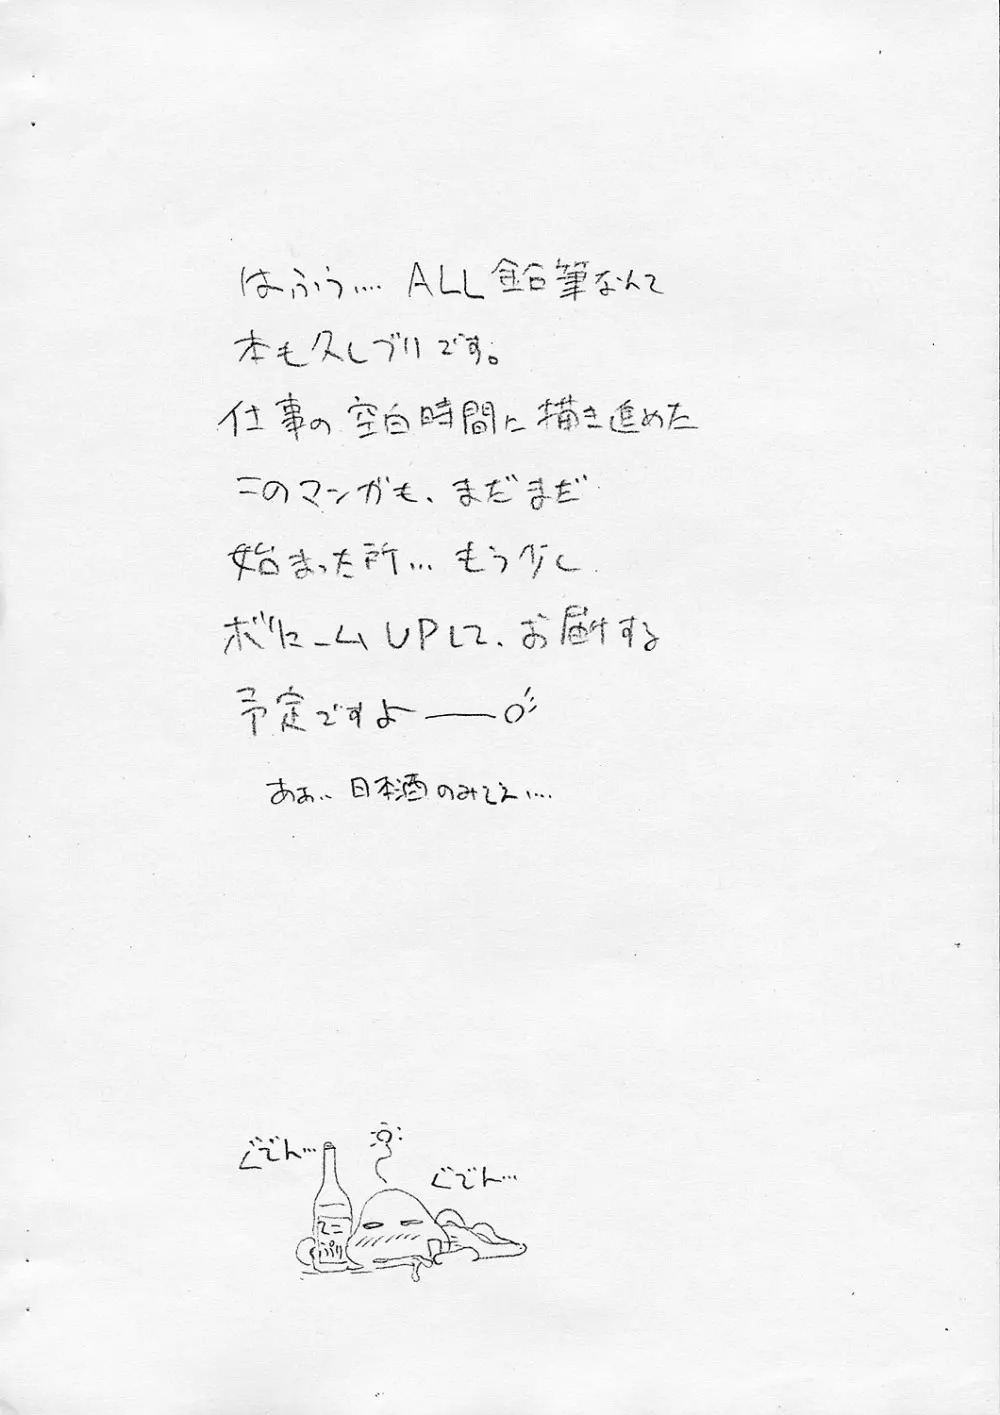 はふぅ… ALL鉛筆なんて
本も久しブリです。
仕事の空白時間に描き進めた
このマンガも、まだまだ
始まった所… もう少し
ボリュームUPして、お届けする
予定ですよ――○"
あぁ… 日本酒のみてえ…
ぐでん…
ぐでん…
ぷり